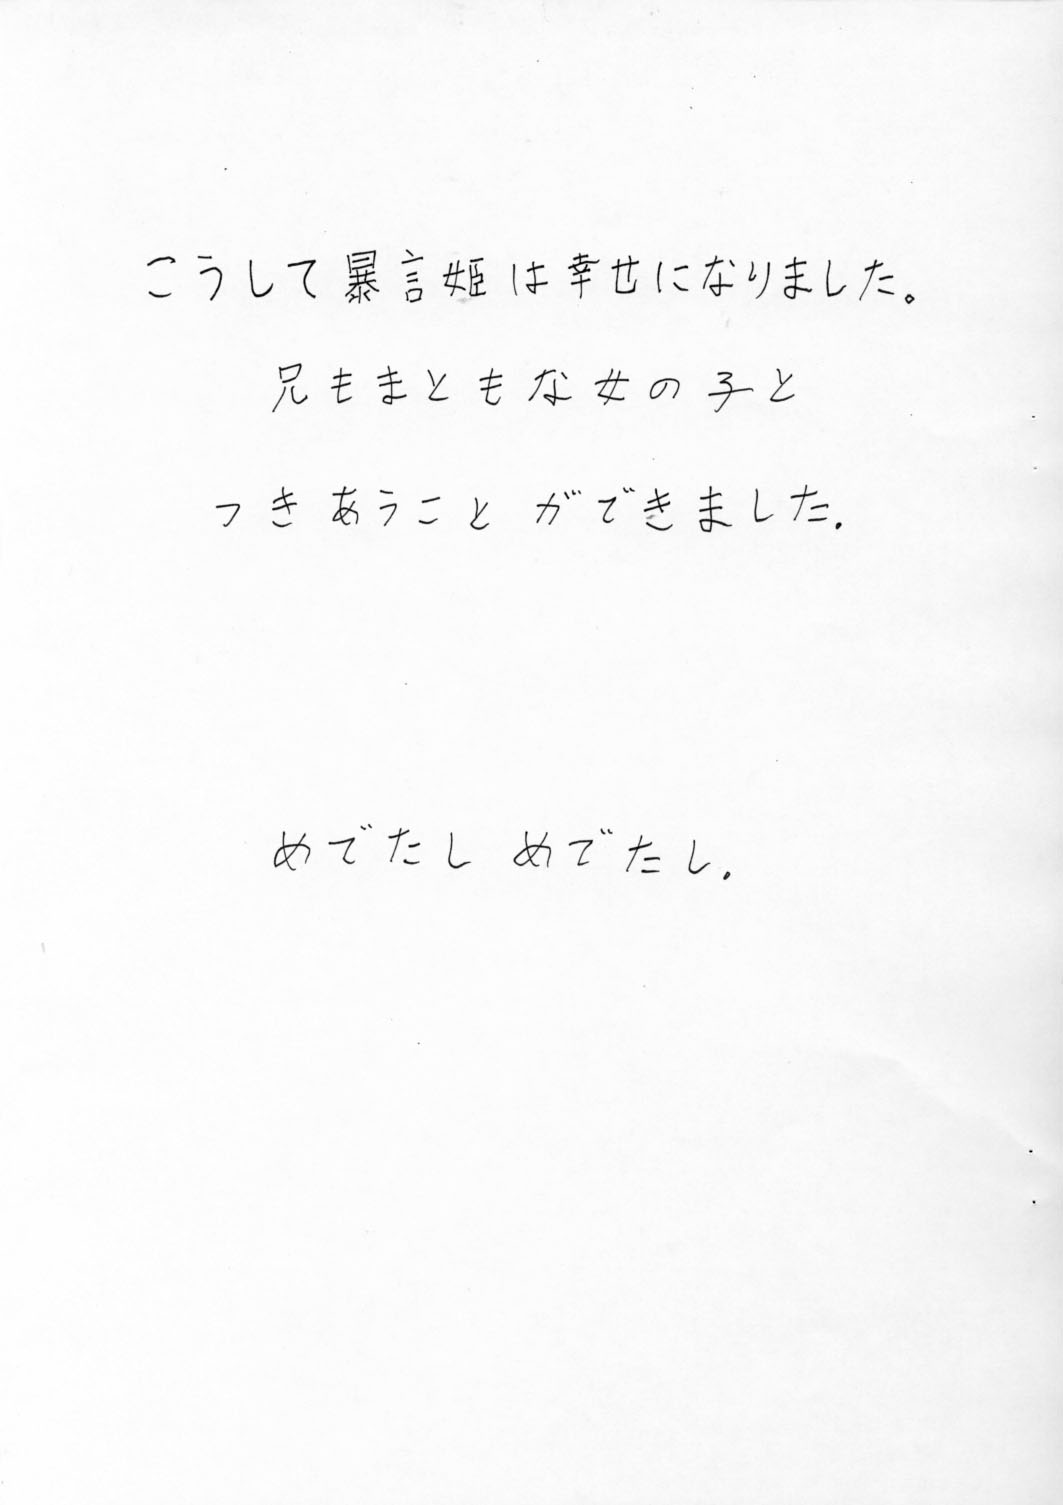 こうして暴言姫は幸せになりました。
兄もまともな女の子と
つきあうことができました.
めでたし めでたし.